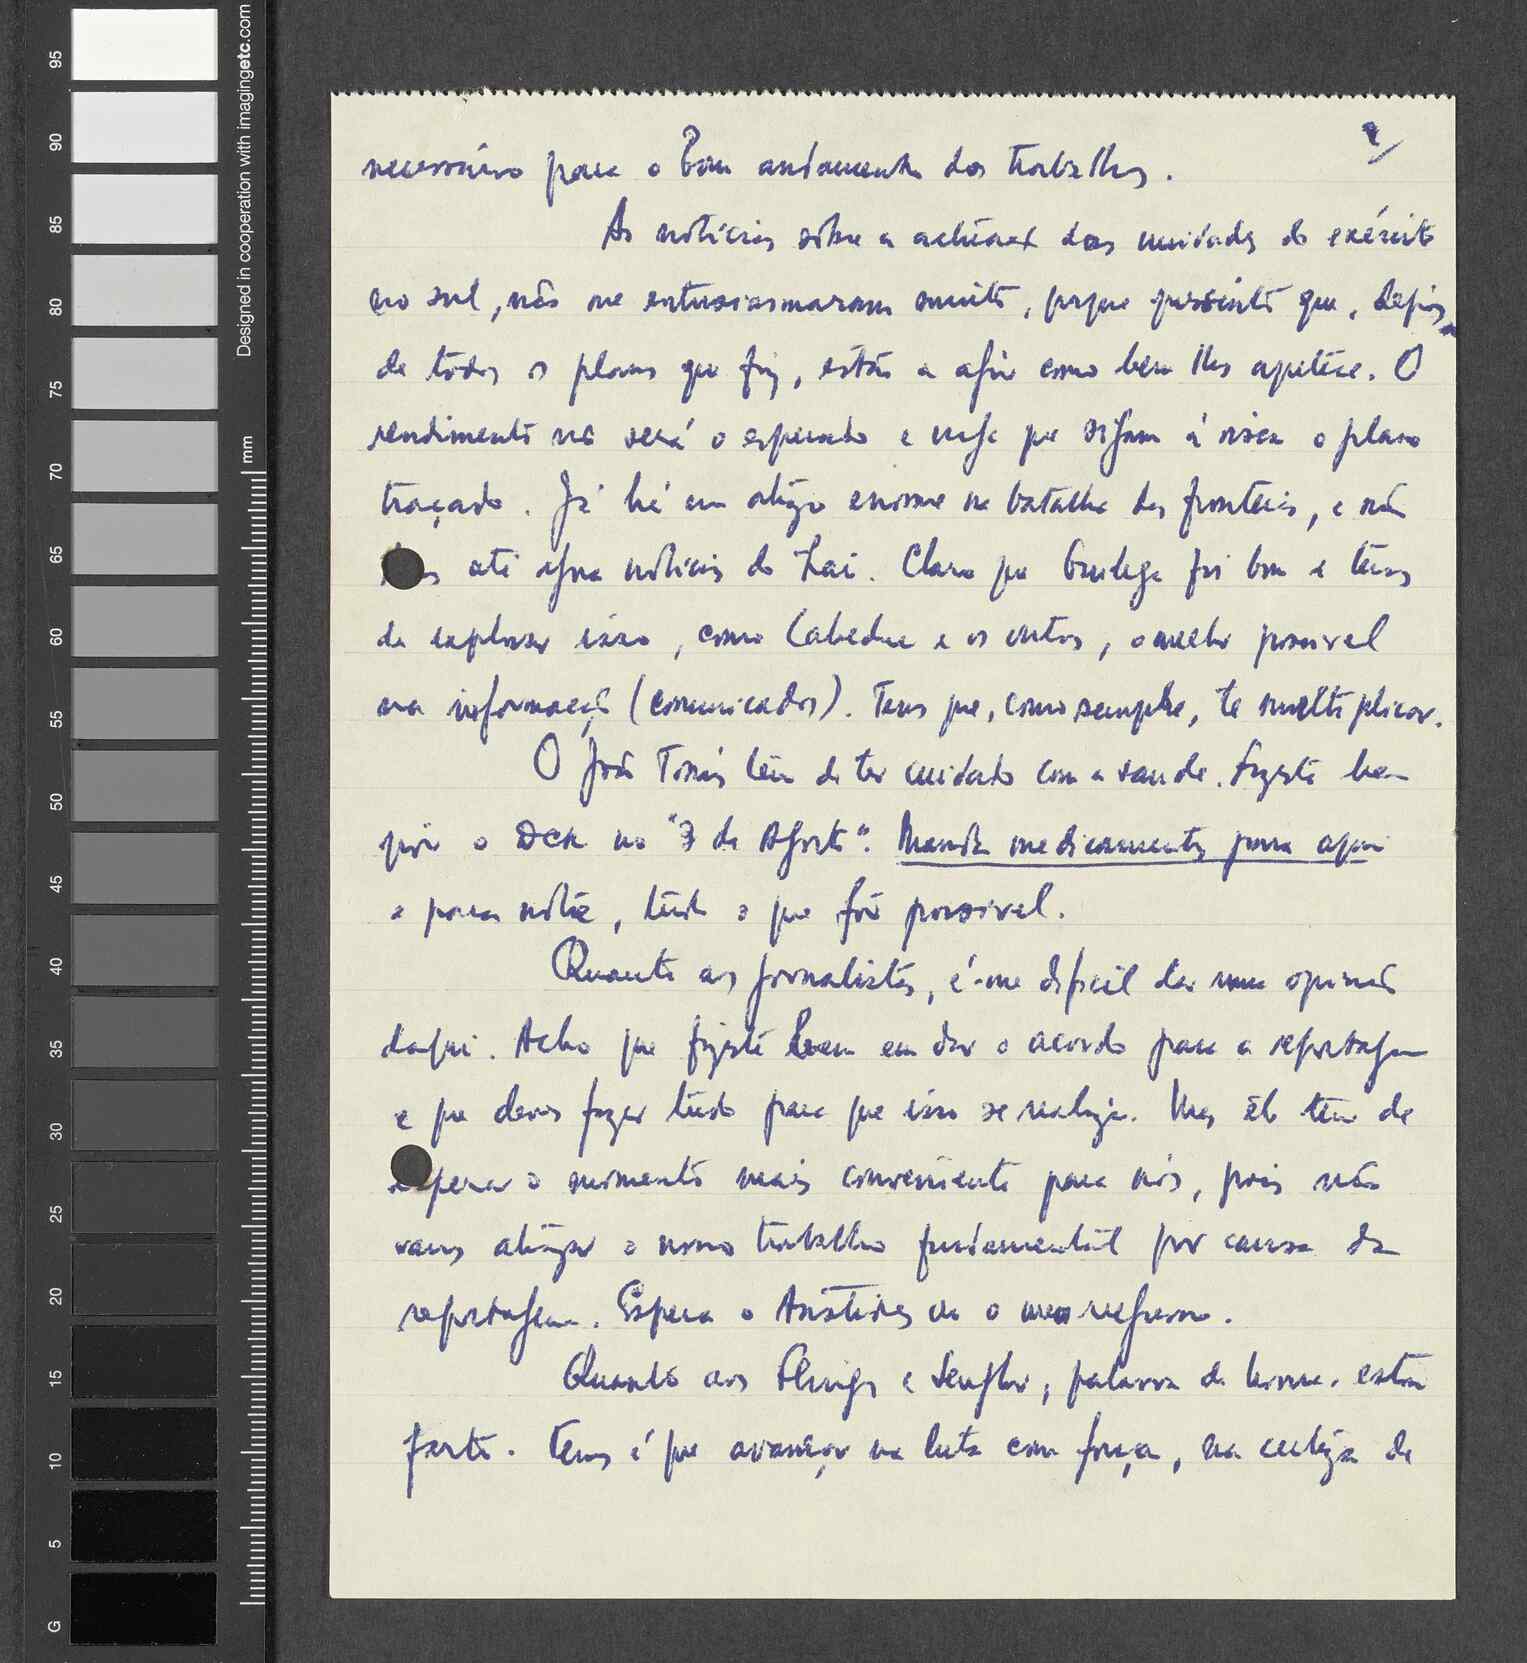 necessário para o bom andamento dos trabalhos.
2/
As notícias sôbre a actuação das unidades do exército
no sul, não me entusiasmaram muito, porque pressinto que, depois
de todos os planos que fiz, estão a agir como bem lhes apetece. O
rendimento não será o esperado e urge que sigam à risca o plano
traçado. Já há um atrazo enorme na batalha das fronteiras, e não
até agora notícias do Lai. Claro que Gubilega foi bom e temos
de explorar isso, como Cabedue e os outros, o melhor possivel
na informação (comunicados). Tens que, como sempre, te multiplicar.
O João Tomás tem de ter cuidado com a saude. Fizeste bem
pôr o DCK no "3 de Agosto". Manda medicamentos para aqui
e para nóbe, tudo o que fôr possivel.
Quanto aos jornalistas, é-me dificil dar uma opinião
daqui. Acho que fizeste bem em dar o acordo para a reportagem
e que deves fazer tudo para que isso se realize. Mas êle tem de
esperar o momento mais conveniente para nós, pois não
vamos atrazar o nosso trabalho fundamental por causa da
reportagem. Espera o Aristides ou o meu regresso.
Quanto aos Flings e Senghor, palavra de honra, estou
farto. Temos é que avançar na luta com força, na certeza de
95
90
85
80
75
70
65
60
55
50
45
40
35
30
25
20
15
10
5
G
mm
Designed in cooperation with imagingetc.com